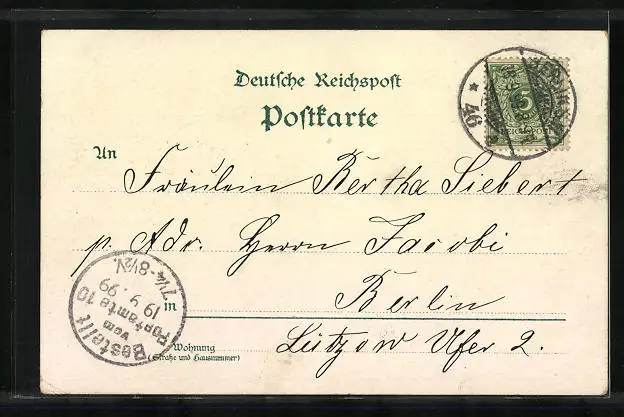 Deutsche Reichspost
Postkarte
46
5
REICHSPOST
An
Fräulein Bertha Siebert
p. Adr. Herrn Jacobi
in
Berlin
Wohnung
(Straße und Hausnummer)
Lützow Ufer 2.
Bestellt
vom
Postamte 10
19 9. 99
7¼-8½N.